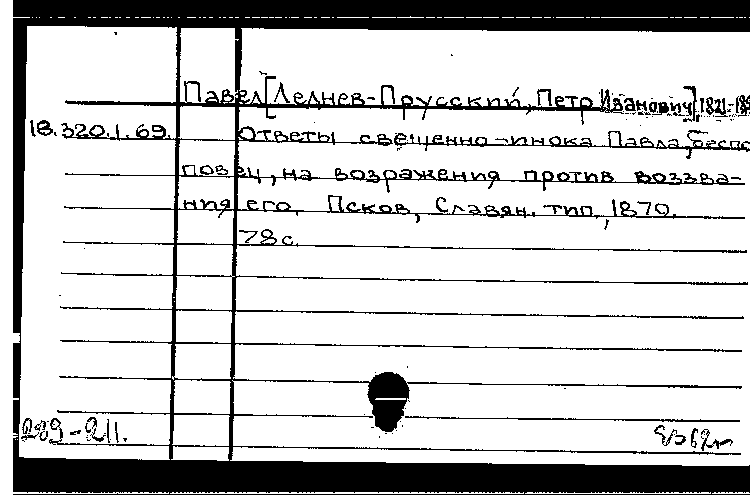 Павел [Леднев-Прусский, Петр Иванович] 1821-189
18.320.1.69. Ответы священно-инока Павла, беспо
повец, на возражения против воззва-
ния его. Псков, Славян. тип., 1870.
78 с.
289-211.